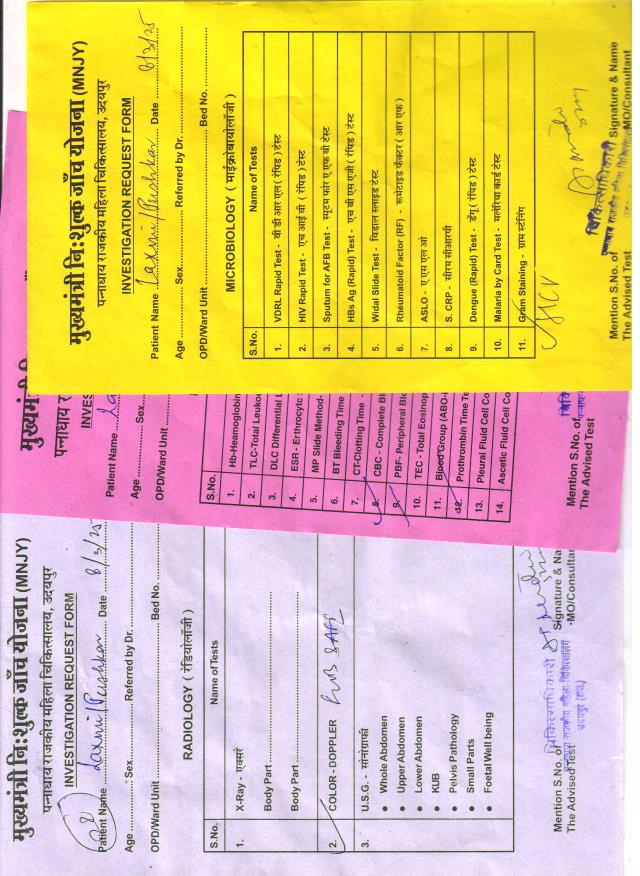 मुख्यमंत्री नि:शुल्क जाँच योजना (MNJY)
पन्नाधाय राजकीय महिला चिकित्सालय, उदयपुर
INVESTIGATION REQUEST FORM
Patient Name Laxmi/Pushkar Date 8/3/25
Age Sex Referred by Dr.
OPD/Ward Unit Bed No.
RADIOLOGY ( रेडियोलॉजी )
S.No. Name of Tests
1. X-Ray - एक्सरे
Body Part
Body Part
2. COLOR-DOPPLER
3. U.S.G. - सोनोग्राफी
• Whole Abdomen
• Upper Abdomen
• Lower Abdomen
• KUB
• Pelvis Pathology
• Small Parts
• Foetal Well being
चिकित्साधिकारी
राजकीय महिला चिकित्सालय
उदयपुर (राज.)
Mention S.No. of Signature & Na
The Advised Test MO/Consultant
मुख्यमं
पन्नाधाय र
INVES
Patient Name La
Age Sex
OPD/Ward Unit
S.No.
1. Hb-Heamoglobin
2. TLC-Total Leuko
3. DLC Differential L
4. ESR - Erthrocytc
5. MP Slide Method-
6. BT Bleeding Time
7. CT-Clotting Time -
8. CBC - Complete Bl
9. PBF- Peripheral Blo
10. TEC - Total Eosinop
11. Blood Group (ABO-
12. Prothrombin Time Te
13. Pleural Fluid Cell Co
14. Ascetic Fluid Cell Co
Mention S.No. of
The Advised Test
मुख्यमंत्री नि:शुल्क जाँच योजना (MNJY)
पन्नाधाय राजकीय महिला चिकित्सालय, उदयपुर
INVESTIGATION REQUEST FORM
Patient Name Laxmi/Pushkar Date 8/3/25
Age Sex Referred by Dr.
OPD/Ward Unit Bed No.
MICROBIOLOGY ( माईक्रोबायोलॉजी )
S.No. Name of Tests
1. VDRL Rapid Test - वी डी आर एल ( रेपिड ) टेस्ट
2. HIV Rapid Test - एच आई वी ( रेपिड ) टेस्ट
3. Sputum for AFB Test - स्पूटम फोर ए एफ बी टेस्ट
4. HBs Ag (Rapid) Test - एच बी एस एजी ( रेपिड ) टेस्ट
5. Widal Slide Test - विडाल स्लाइड टेस्ट
6. Rheumatoid Factor (RF) - रूमेटाइड फैक्टर ( आर एफ )
7. ASLO - ए एस एल ओ
8. S. CRP - सीरम सीआरपी
9. Dengue (Rapid) Test - डेंगू ( रेपिड ) टेस्ट
10. Malaria by Card Test - मलेरिया कार्ड टेस्ट
11. Gram Staining - ग्राम स्टेनिंग
HCV
चिकित्साधिकारी
Mention S.No. of Signature & Name
The Advised Test MO/Consultant